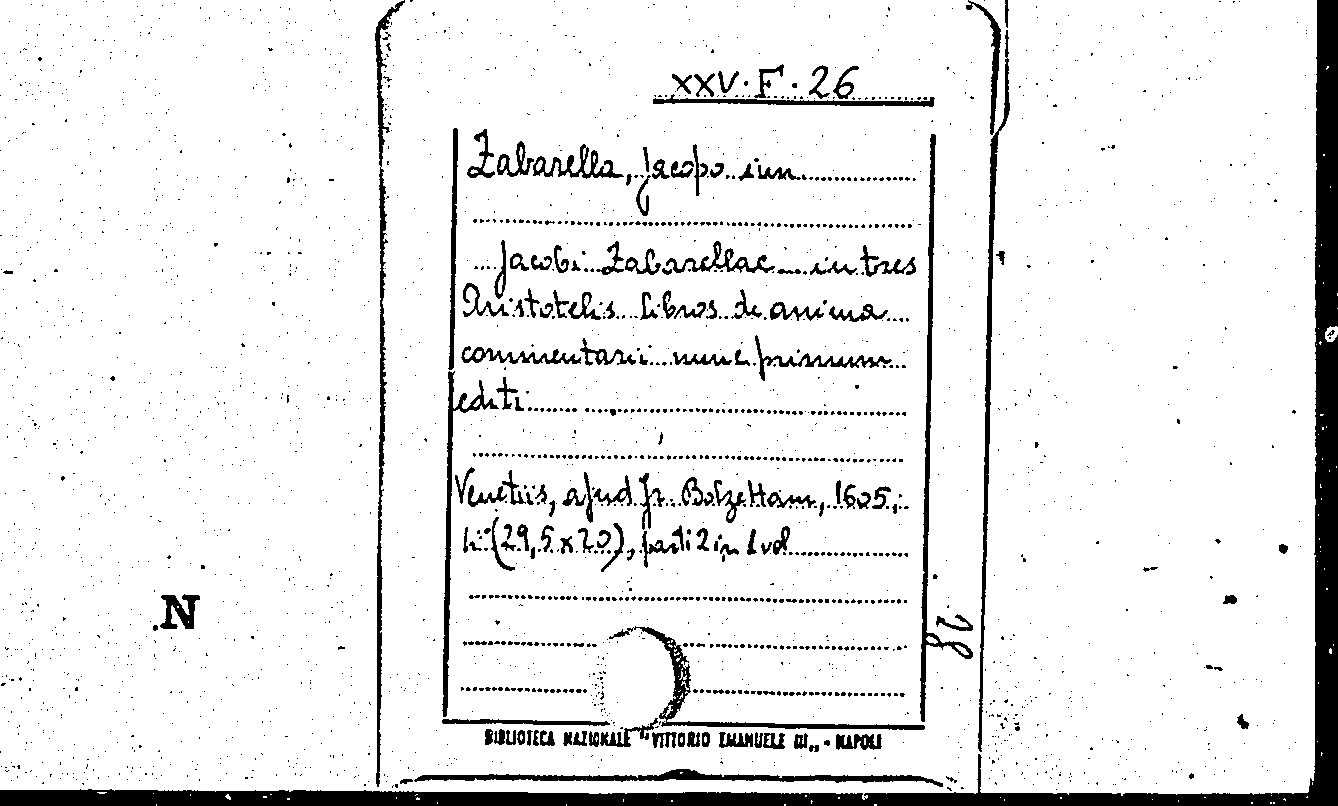 XXV.F.26
Zabarella, Jacopo iun.
Jacobi Zabarellae in tres
Aristotelis libros de anima
commentarii nunc primum
editi
Venetiis, apud Fr. Bolzettam, 1605,
(29,5x20), parti 2 in 1 vol.
N
BIBLIOTECA NAZIONALE "VITTORIO EMANUELE III" - NAPOLI